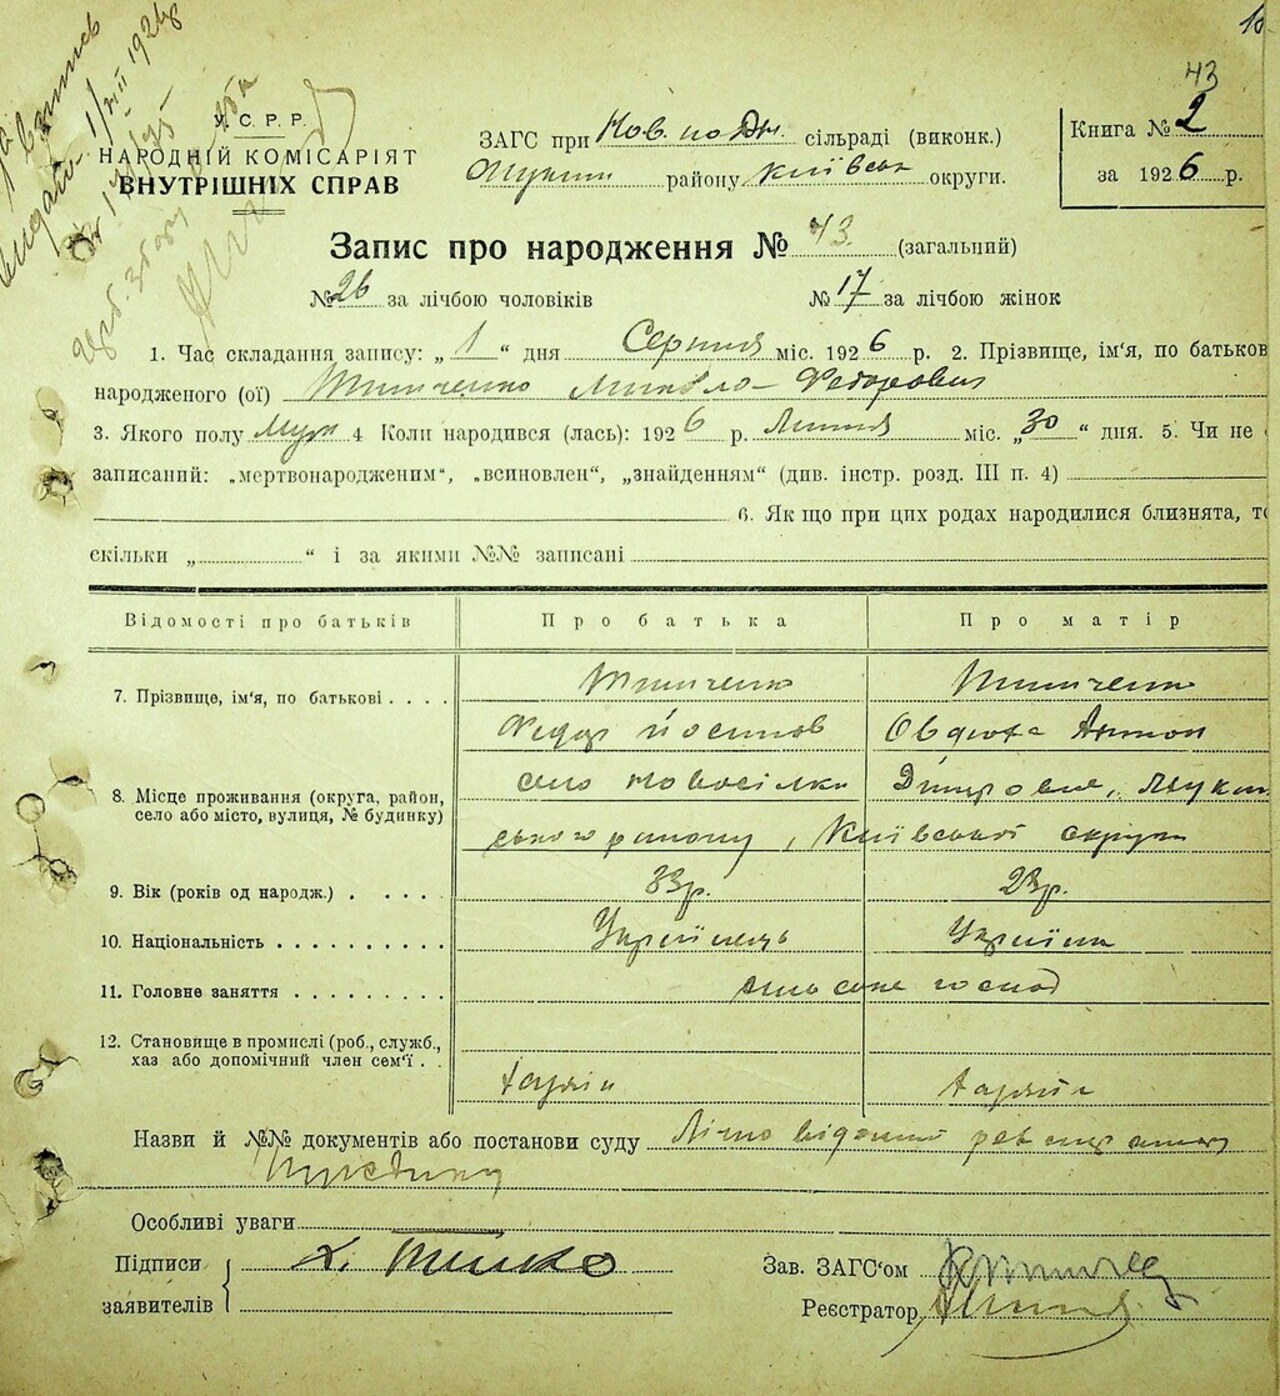 10
43
У. С. Р. Р.
НАРОДНІЙ КОМІСАРІЯТ
ВНУТРІШНІХ СПРАВ
ЗАГС при Нов. по Дн. сільраді (виконк.)
району Київськ округи.
Книга № 2
за 1926 р.
Запис про народження № 43. (загальний)
№ 26 за лічбою чоловіків № 17 за лічбою жінок
1. Час складання запису: „ 1 “ дня Серпня міс. 1926 р. 2. Прізвище, ім'я, по батьков
народженого (ої) Тимченко Микола Федорович
3. Якого полу Муж 4 Коли народився (лась): 1926 р. Липня міс. „30 “ дня. 5. Чи не
записаний: „мертвонародженим“, „всиновлен“, „знайденням“ (див. інстр. розд. III п. 4)
6. Якщо при цих родах народилися близнята, то
скільки „ “ і за якими №№ записані
Відомості про батьків Про батька Про матір
7. Прізвище, ім'я, по батькові . . . . Тимченко Тимченко
Федор Йосипов Овдотя Антон
8. Місце проживання (округа, район, село Новосілки Дніпрові, Жукин
село або місто, вулиця, № будинку)
ського району, Київської округи
9. Вік (років од народж.) . . . . . 33р. 23р.
10. Національність . . . . . . . . . . Українець Українка
11. Головне заняття . . . . . . . . . сільське господ
12. Становище в промислі (роб., служб.,
хаз або допомічний член сем'ї . .
Назви й №№ документів або постанови суду
Особливі уваги
Підписи
заявителів
Зав. ЗАГС'ом
Реєстратор